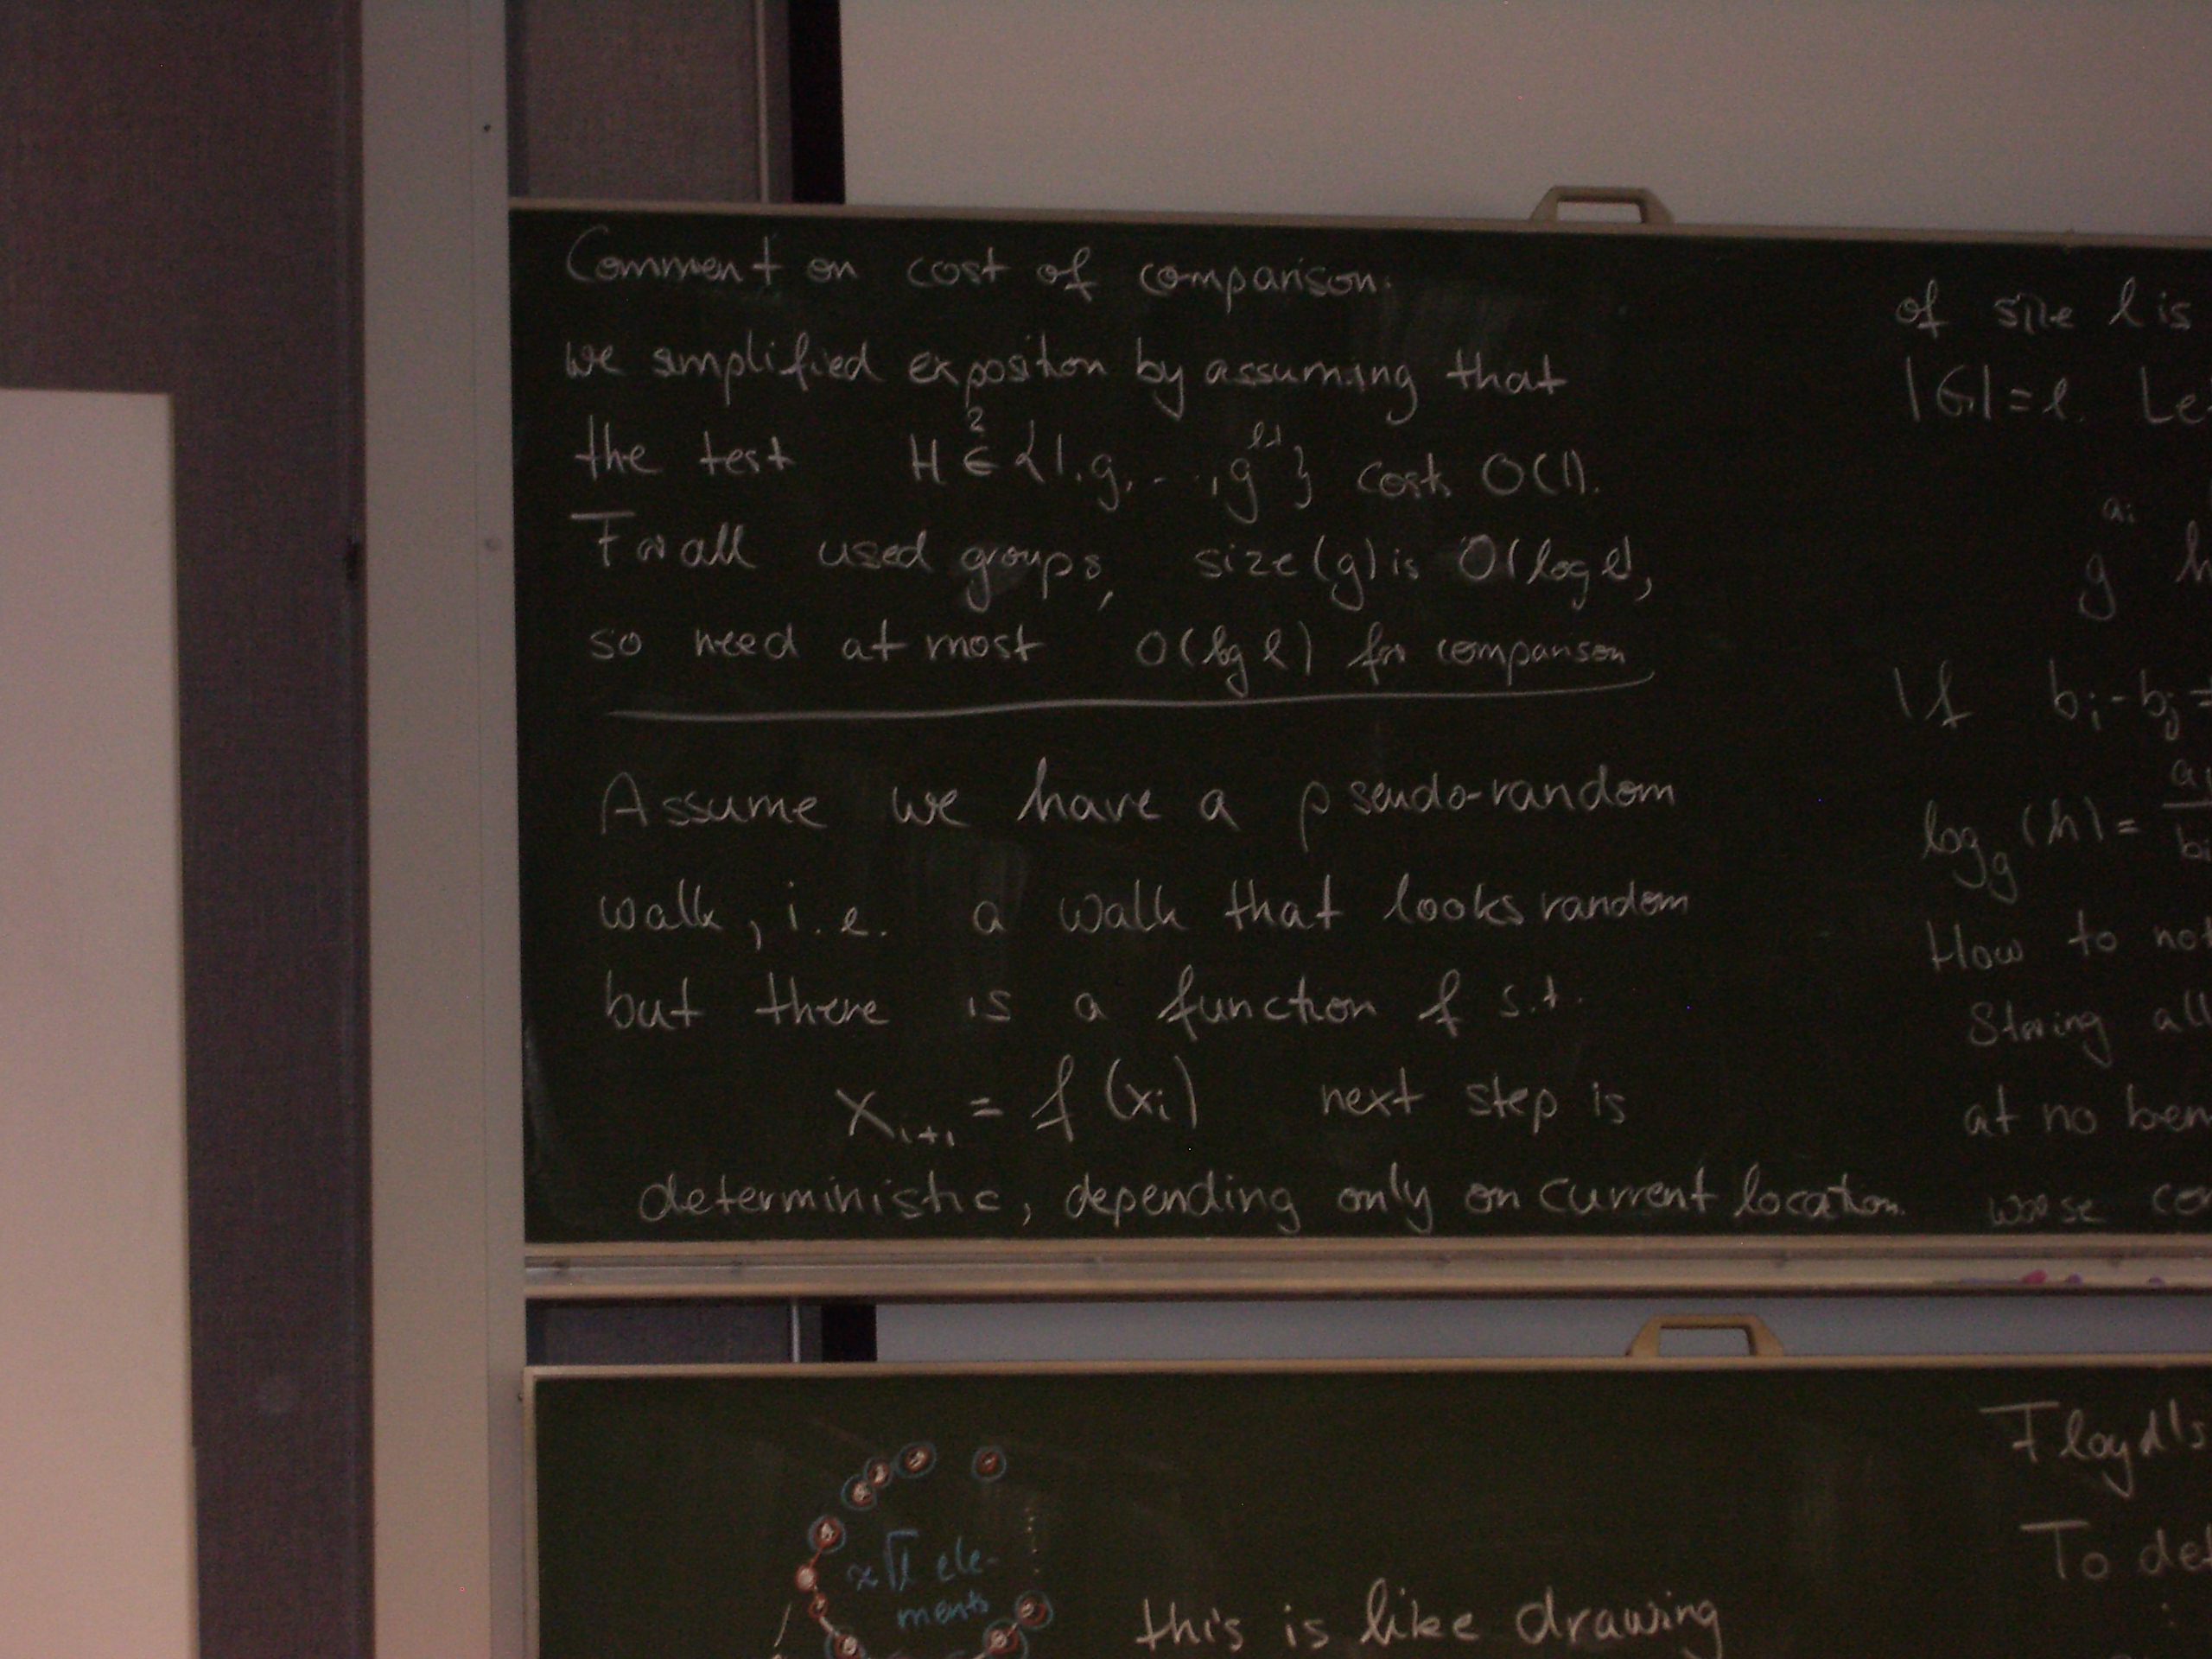 Comment on cost of comparison.
we simplified exposition by assuming that
the test H ∈? {1, g, ..., g^{l-1}} costs O(1).
For all used groups, size(g) is O(log l),
so need at most O(log l) for comparison
Assume we have a pseudo-random
walk, i.e. a walk that looks random
but there is a function f s.t.
x_{i+1} = f(x_i) next step is
deterministic, depending only on current location.
of size l is
|G|=l. Le
g^{a_i} h
If b_i - b_j ≠
log_g(h) = a_i
b_i
How to not
Storing all
at no ben
worse co
≈√l ele-
ments
this is like drawing
Floyd's
To det